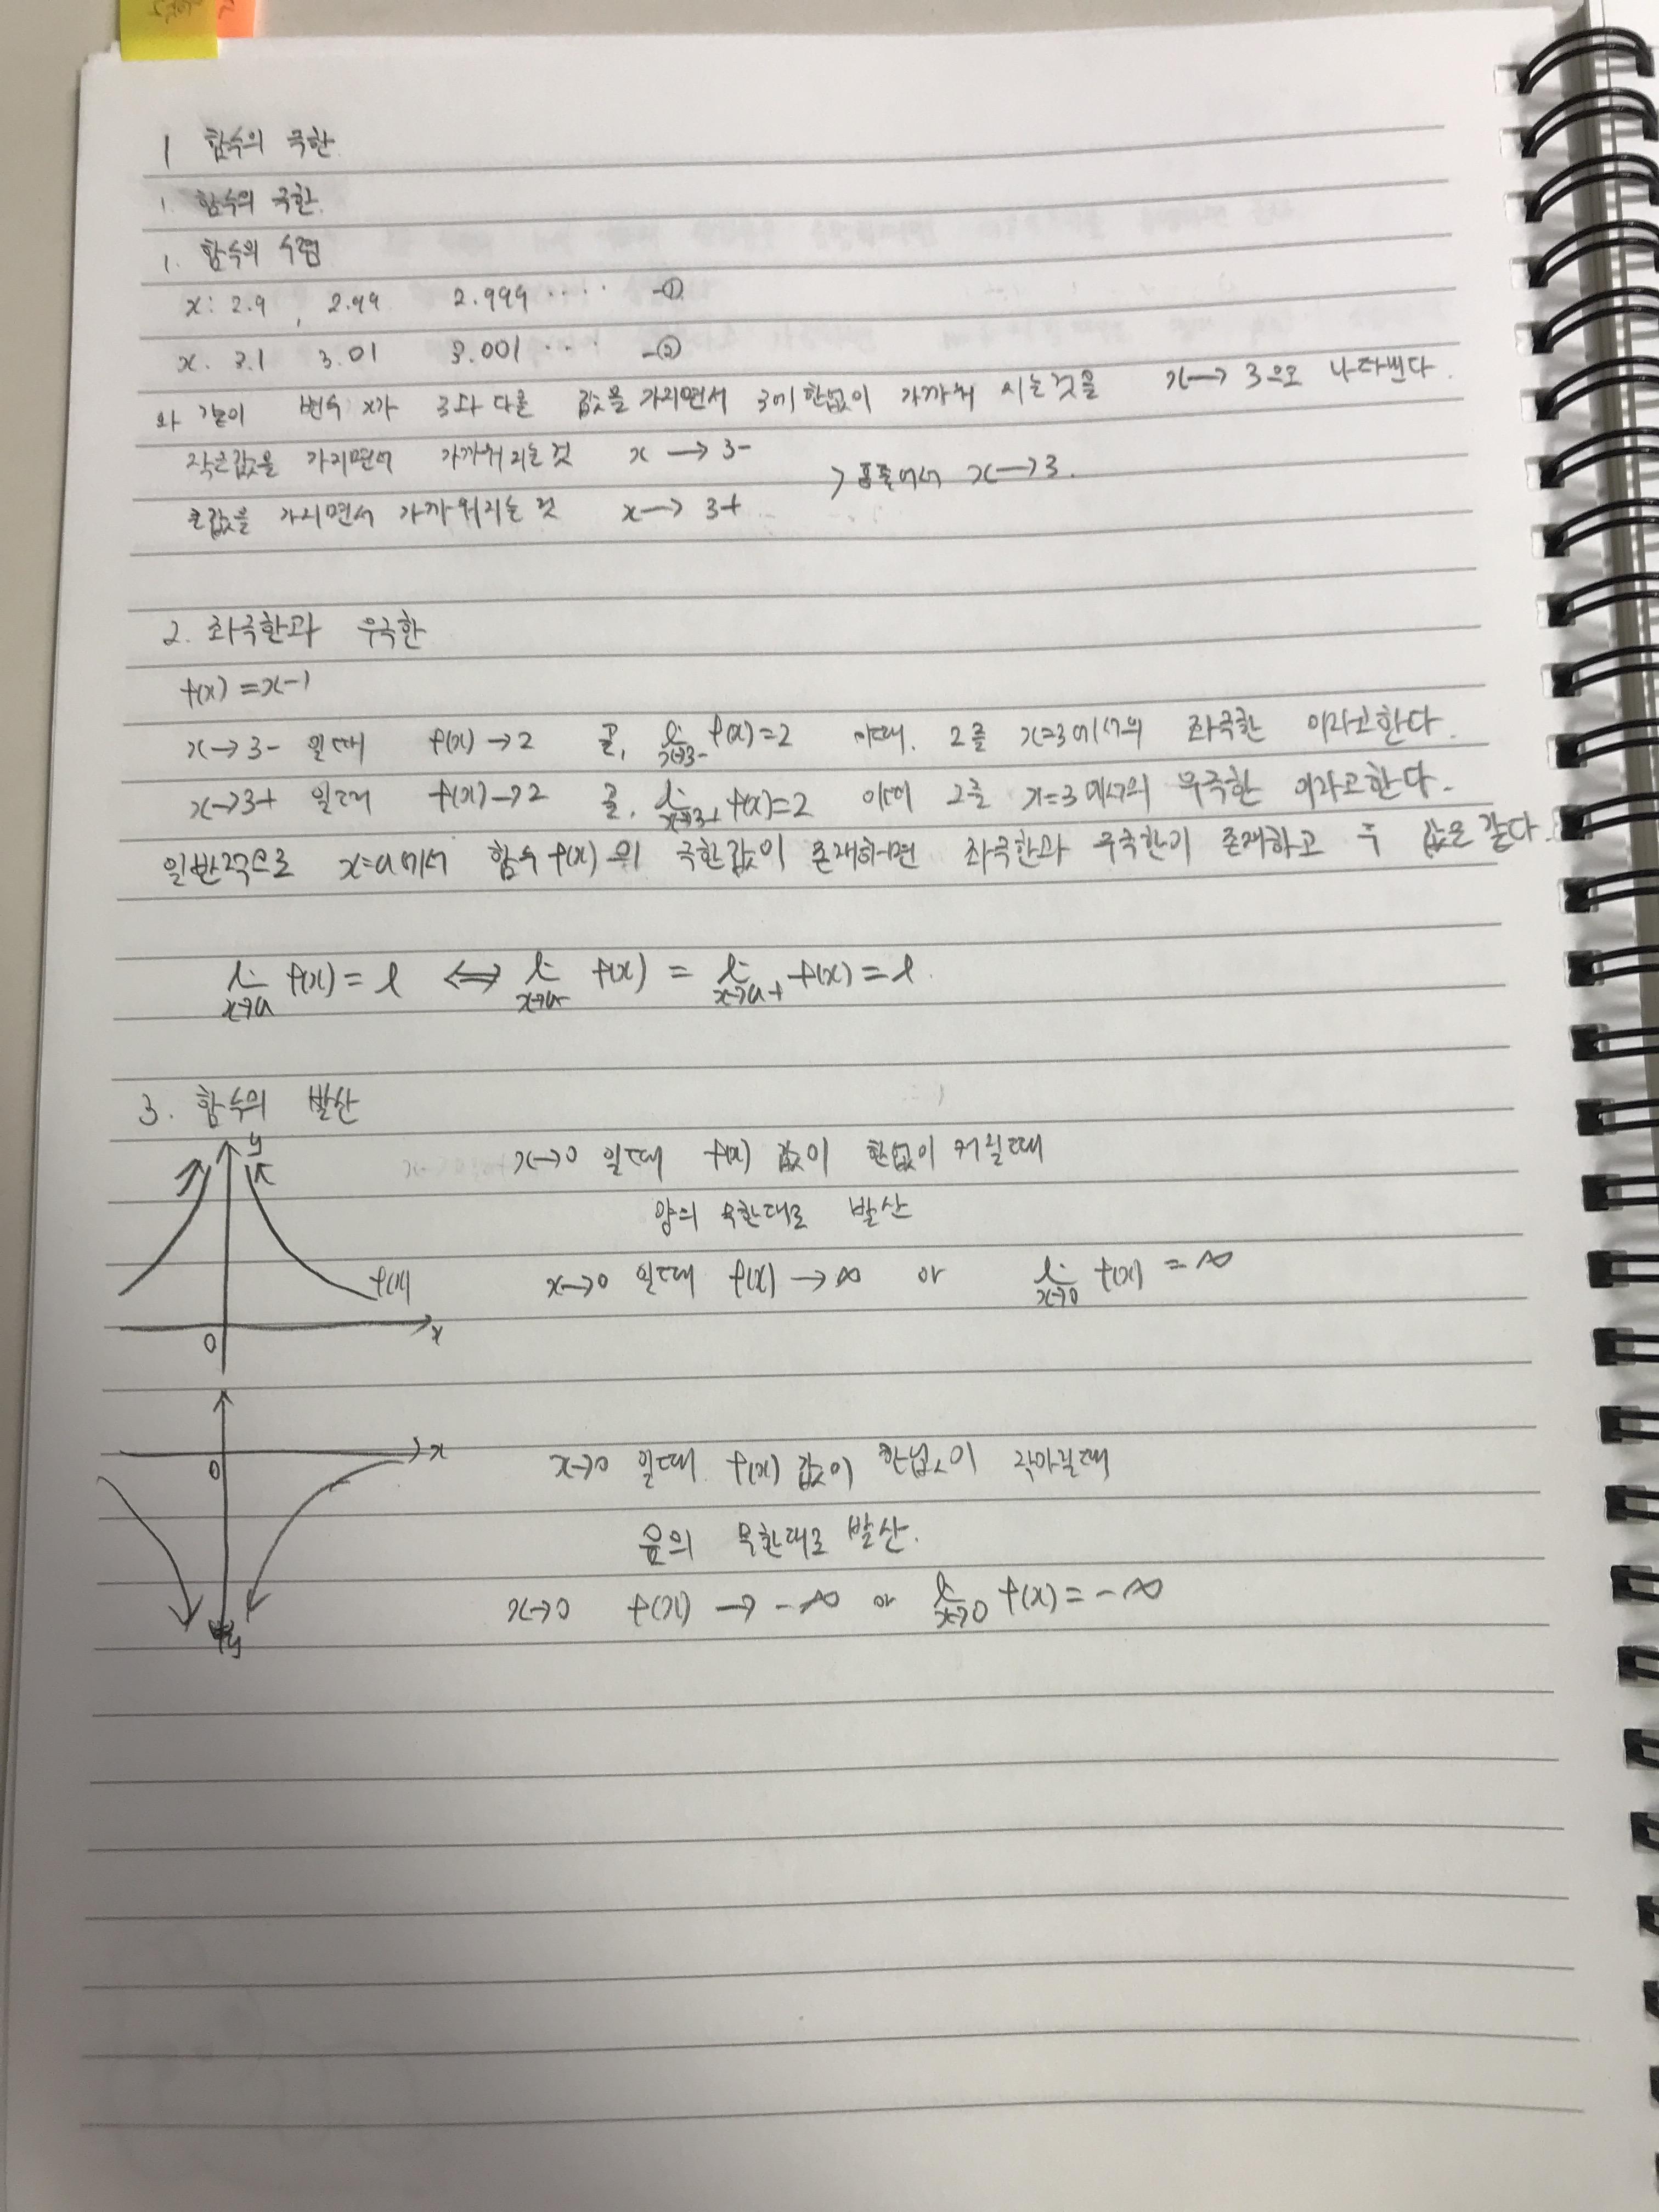 1 함수의 극한
1. 함수의 극한.
1. 함수의 수렴
x: 2.9, 2.99 2.999 ····· -①
x. 3.1 3.01 3.001 ··· -②
와 같이 변수 x가 3과 다른 값을 가지면서 3에 한없이 가까워 지는것을 x→3으로 나타낸다.
작은값을 가지면서 가까워지는것 x→3-
> 통틀어서 x→3.
큰값을 가지면서 가까워지는 것 x→3+
2. 좌극한과 우극한
f(x)=x-1
x→3- 일때 f(x)→2 곧, lim x→3- f(x)=2 이때. 2를 x=3에서의 좌극한 이라고한다.
x→3+ 일때 f(x)→2 곧, lim x→3+ f(x)=2 이때 2를 x=3에서의 우극한 이라고한다.
일반적으로 x=a에서 함수 f(x)의 극한값이 존재하면 좌극한과 우극한이 존재하고 두 값은 같다.
lim x→a f(x)=l ⟺ lim x→a- f(x) = lim x→a+ f(x)=l.
3. 함수의 발산
y
x→0 일때 f(x) 값이 한없이 커질때
양의 무한대로 발산
f(x)
x→0 일때 f(x)→∞ or lim x→0 f(x)=∞
0 x
0 x
x→0 일때 f(x) 값이 한없이 작아질때
음의 무한대로 발산.
x→0 f(x)→-∞ or lim x→0 f(x)=-∞
y